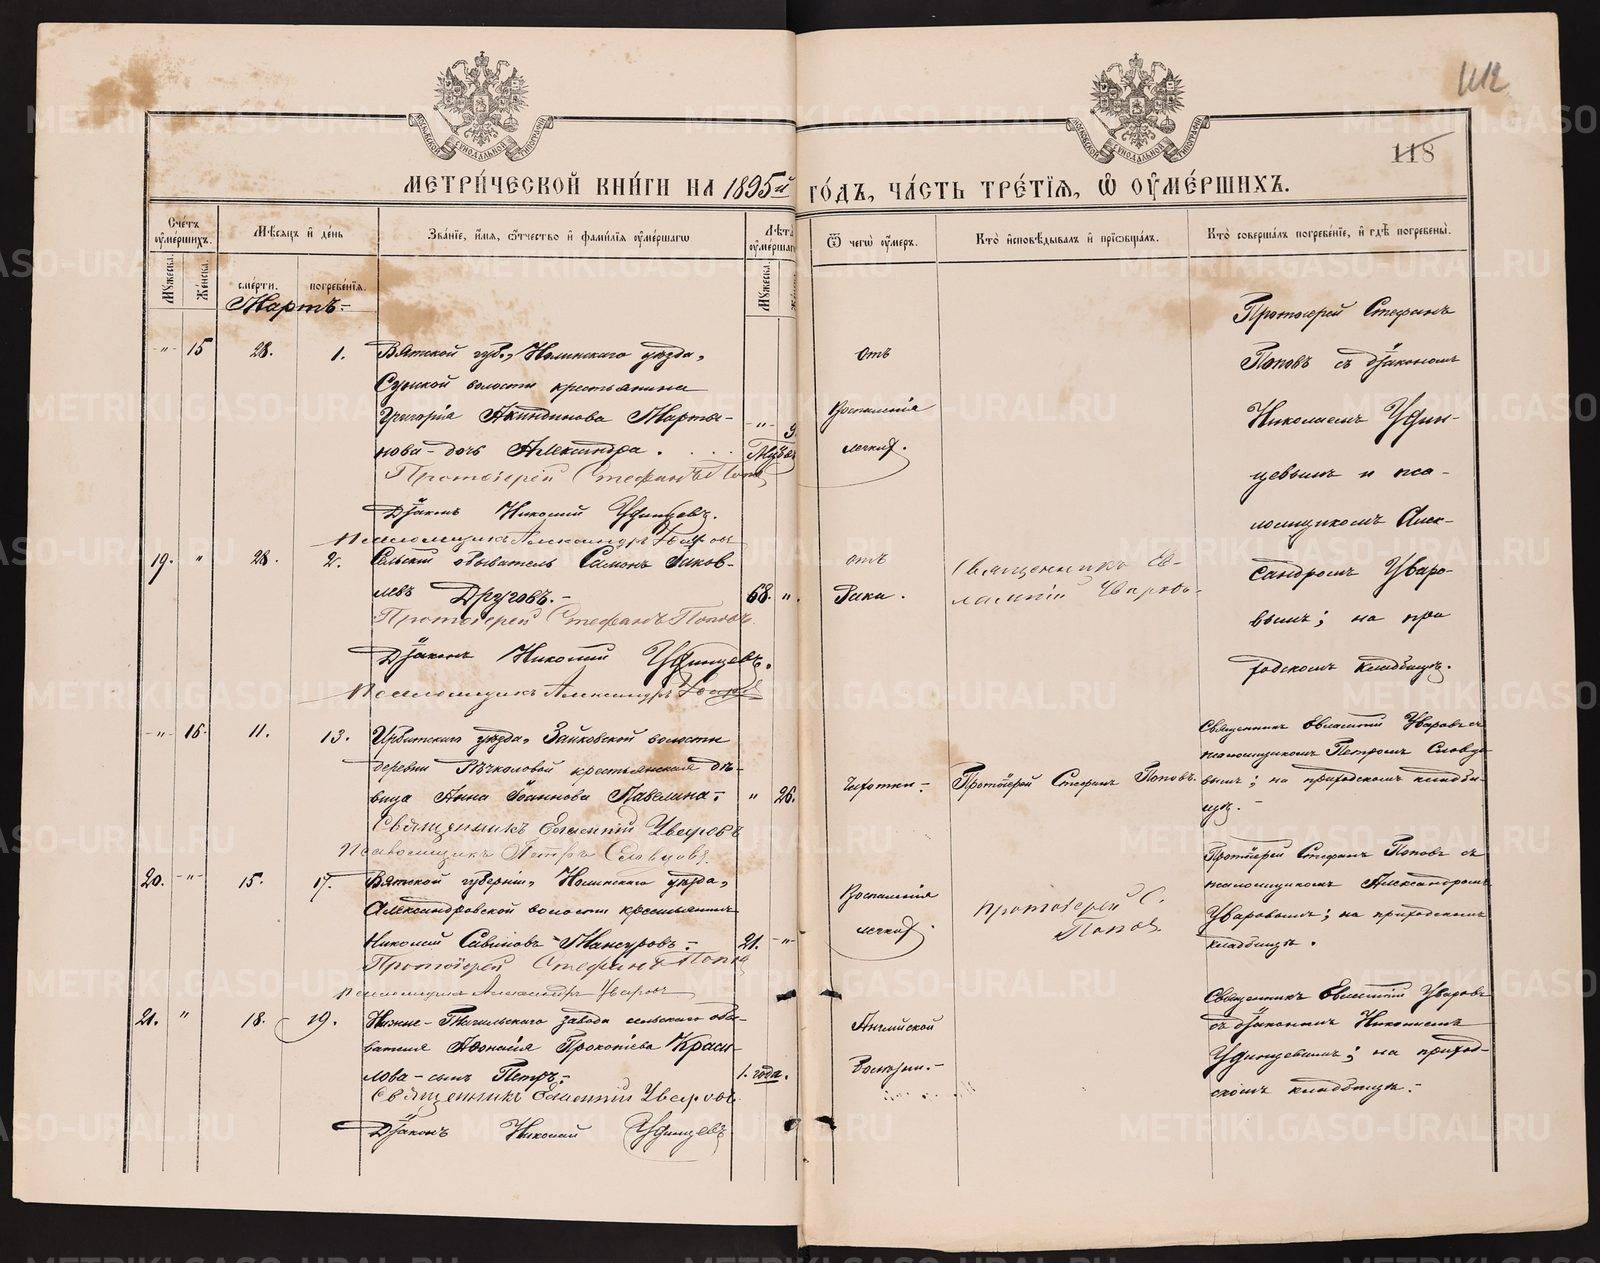 112
118
МЕТРИ́ЧЕСКОЙ КНИ́ГИ НА 1895й ГО́ДЪ, ЧА́СТЬ ТРЕ́ТЇЯ, Ѡ ОУМЕ́РШИХЪ.
Сче́тъ оуме́ршихъ.
Мѣ́сяцъ и де́нь
Зва́нїе, и́мя, ѻ́тчество и фами́лїя оуме́ршагѡ
Лѣ́та оуме́ршаг
Ѿ чегѡ̀ оу́меръ.
Кто̀ и҆сповѣ́дывалъ и҆ прїѡбща́лъ.
Кто̀ соверша́лъ погребе́нїе, и҆ гдѣ̀ погребены̀.
Му́жеска.
Же́нска.
сме́рти.
погребе́нїя.
Му́жеска.
Мартъ.-
-"- 15 28. 1. Вятской губ., Нолинскаго уѣзда,
волости крестьянина
Григорія Акиндинова Марты-
нова-дочь Александра.
Протоіерей Стефанъ Попов
Діаконъ Николай Удинцевъ.
Псаломщикъ Александръ Уваров
отъ
Воспаленія
легких.
Протоіерей Стефанъ
Поповъ съ діакономъ
Николаемъ Удин-
цевымъ и пса-
ломщикомъ Алек-
сандромъ Уваро-
вымъ; на при
ходскомъ кладбищѣ.
19. " 28. 2. Сельскій обыватель Самонъ Яков-
левъ Друговъ.- 68. ".
Протоіерей Стефанъ Поповъ
Діаконъ Николай Удинцевъ.
Псаломщикъ Александръ Уваров
отъ
Рака.
Священникъ Ев-
лампій Уваров.
-"- 16. 11. 13. Ирбитскаго уѣзда, Зайковской волости
деревни крестьянская дѣ-
вица Анна Іоаннова Павелина.- " 26.
Священникъ Евлампій Уваровъ
Псаломщикъ Петръ Словцовъ.
Чахотки.-
Протоіерей Стефанъ Поповъ.
Священникъ Евлампій Уваровъ съ
псаломщикомъ Петромъ Словцо
вымъ; на приходскомъ кладби-
щѣ.-
20. -"- 15. 17. Вятской губерніи, Нолинскаго уѣзда,
Александровской волости крестьянинъ
Николай Савиновъ Мансуровъ.- 21. -"-
Протоіерей Стефанъ Попов
Псаломщикъ Александръ Уваровъ
Воспаленія
легких.
Протоіерей С.
Попов
Протоіерей Стефанъ Поповъ съ
псаломщикомъ Александромъ
Уваровымъ; на приходскомъ
кладбищѣ.
21. " 18. 19. Нижне-Тагильскаго завода сельскаго обы-
вателя Афонасія Прокопіева Краси-
лова-сынъ Петръ.- 1. года.
Священникъ Евлампій Уваровъ.
Діаконъ Николай Удинцевъ
Англійской
болезни.-
Священникъ Евлампій Уваровъ
съ діакономъ Николаемъ
Удинцевымъ; на приход-
скомъ кладбищѣ.-
METRIKI.GASO-URAL.RU